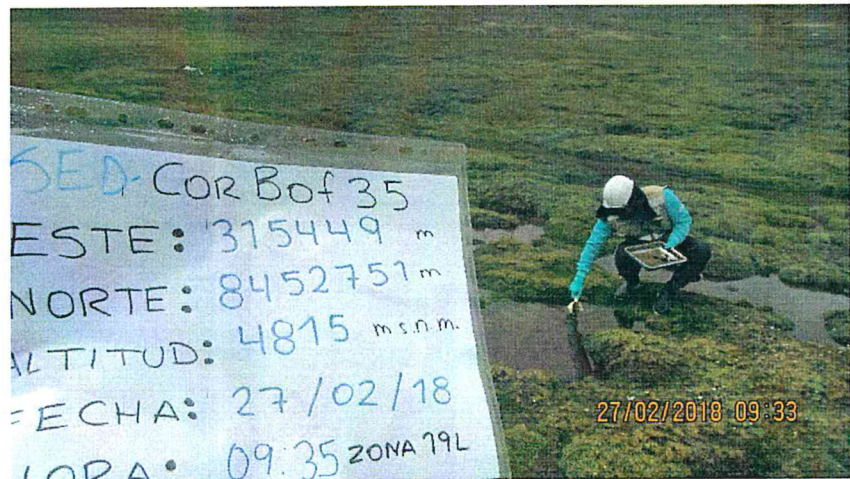 SED-COR Bof 35
ESTE: 315449 m
NORTE: 8452751 m
ALTITUD: 4815 m s.n.m.
FECHA: 27/02/18
HORA: 09:35 ZONA 19L
27/02/2018 09:33